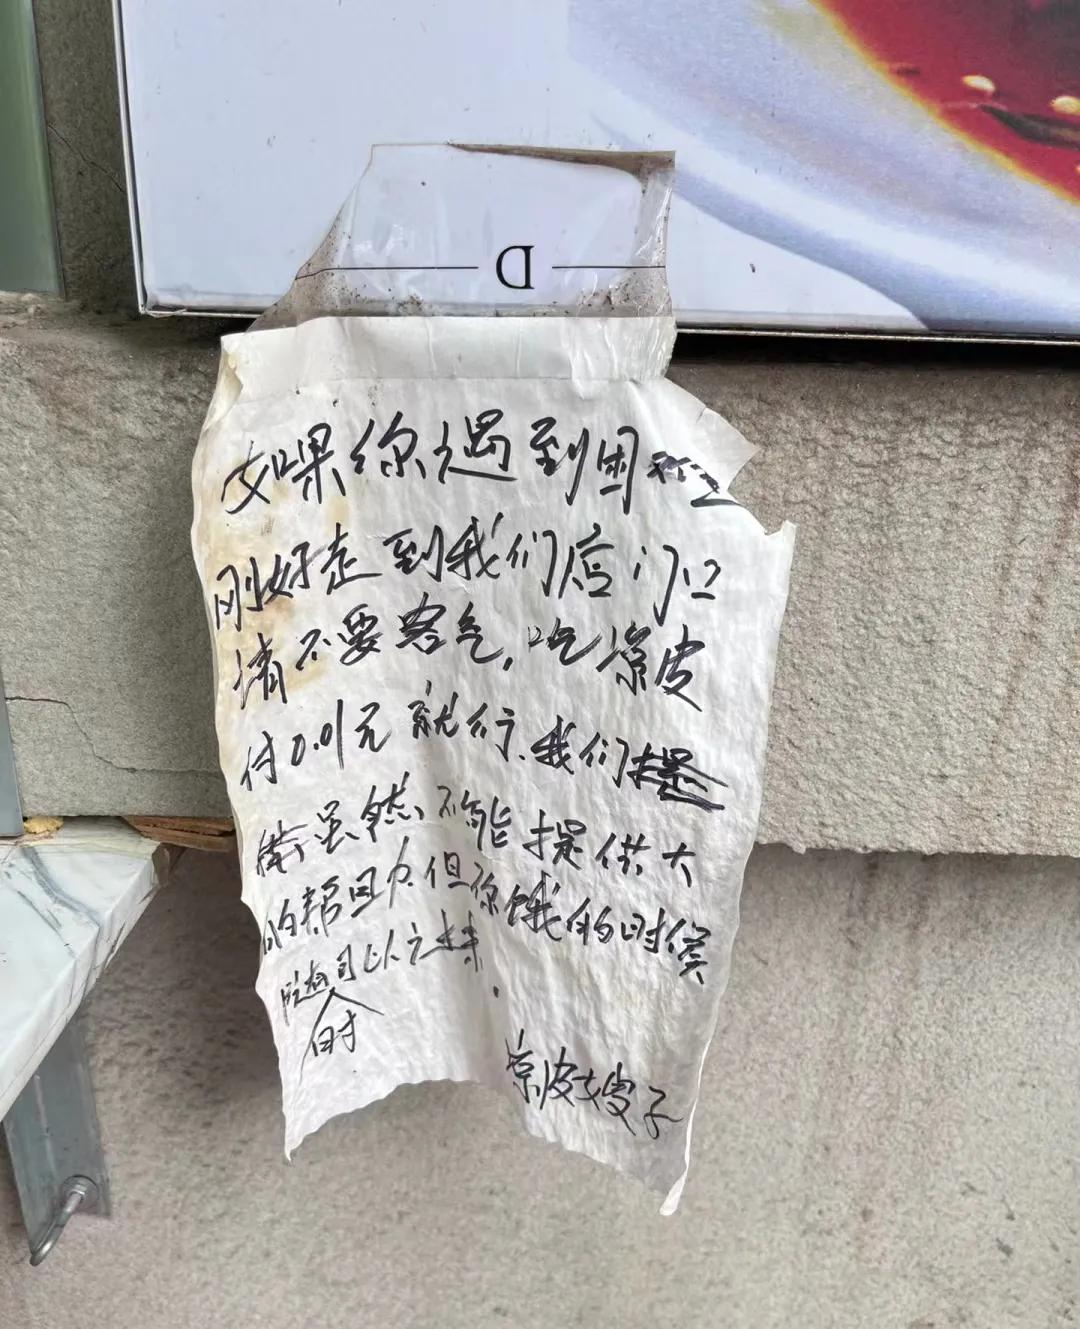 D
如果你遇到困难
刚好走到我们店门口
请不要客气，吃凉皮
付0.01元就行、我们
虽然不能提供大
的帮助，但你饿的时候
随时可以过来.
凉皮嫂子